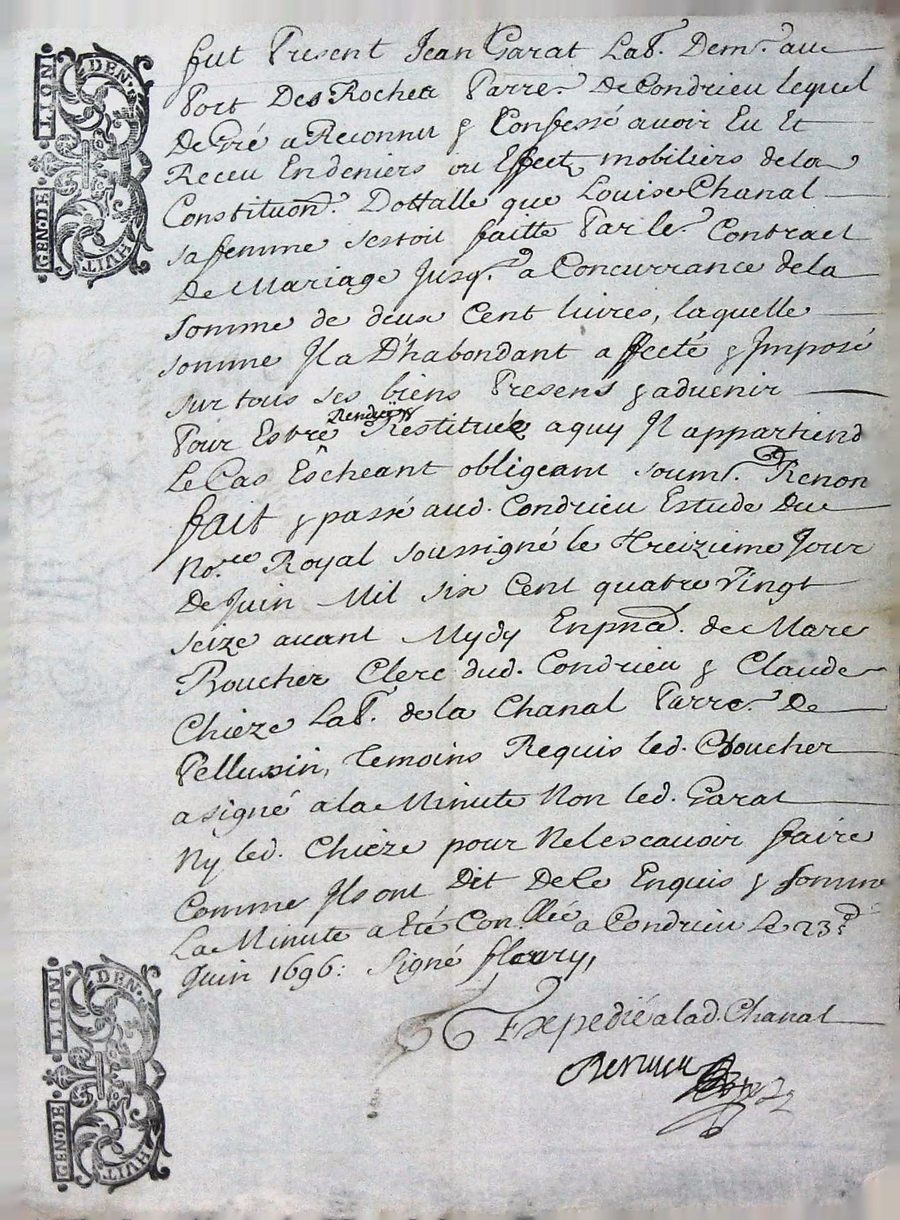 GEN. DE LION
HVIT DEN.
fut Present Jean Garat Lab.r Dem.t au
Port Des Roches Parre. De Condrieu lequel
De Gré a Reconnu & Confessé avoir Eu Et
Receu En deniers ou Effects mobiliers de la
Constituon. Dottalle que Louise Chanal
sa femme sestoit faitte Par le.r Contract
De Mariage Jusq. a Concurrance de la
Somme de deux Cent livres, laquelle
somme Il a D'habondant affecté & Imposé
sur tous ses biens Presens & advenir
Pour Estre Rendüe Restituée a quy Il appartiend
Le Cas Escheant obligeant soum.r Renon
fait & passé aud. Condrieu Estude Du
No.re Royal soussigné le treizieme Jour
De Juin Mil six Cent quatre Vingt
seize avant Mydy En pnce. de Marc
Boucher Clerc dud. Condrieu & Claude
Chieze Lab.r de la Chanal Parre. De
Pellussin, temoins Requis led. Boucher
a signé a la Minute Non led. Garat
Ny led. Chieze pour Ne le scavoir faire
Comme Ils ont Dit De Ce Enquis & sommé
La Minute a Eté Con.llée a Condrieu Le 23.e
Juin 1696: Signé fleury,
Expedié a lad. Chanal
GEN. DE LION
HVIT DEN.